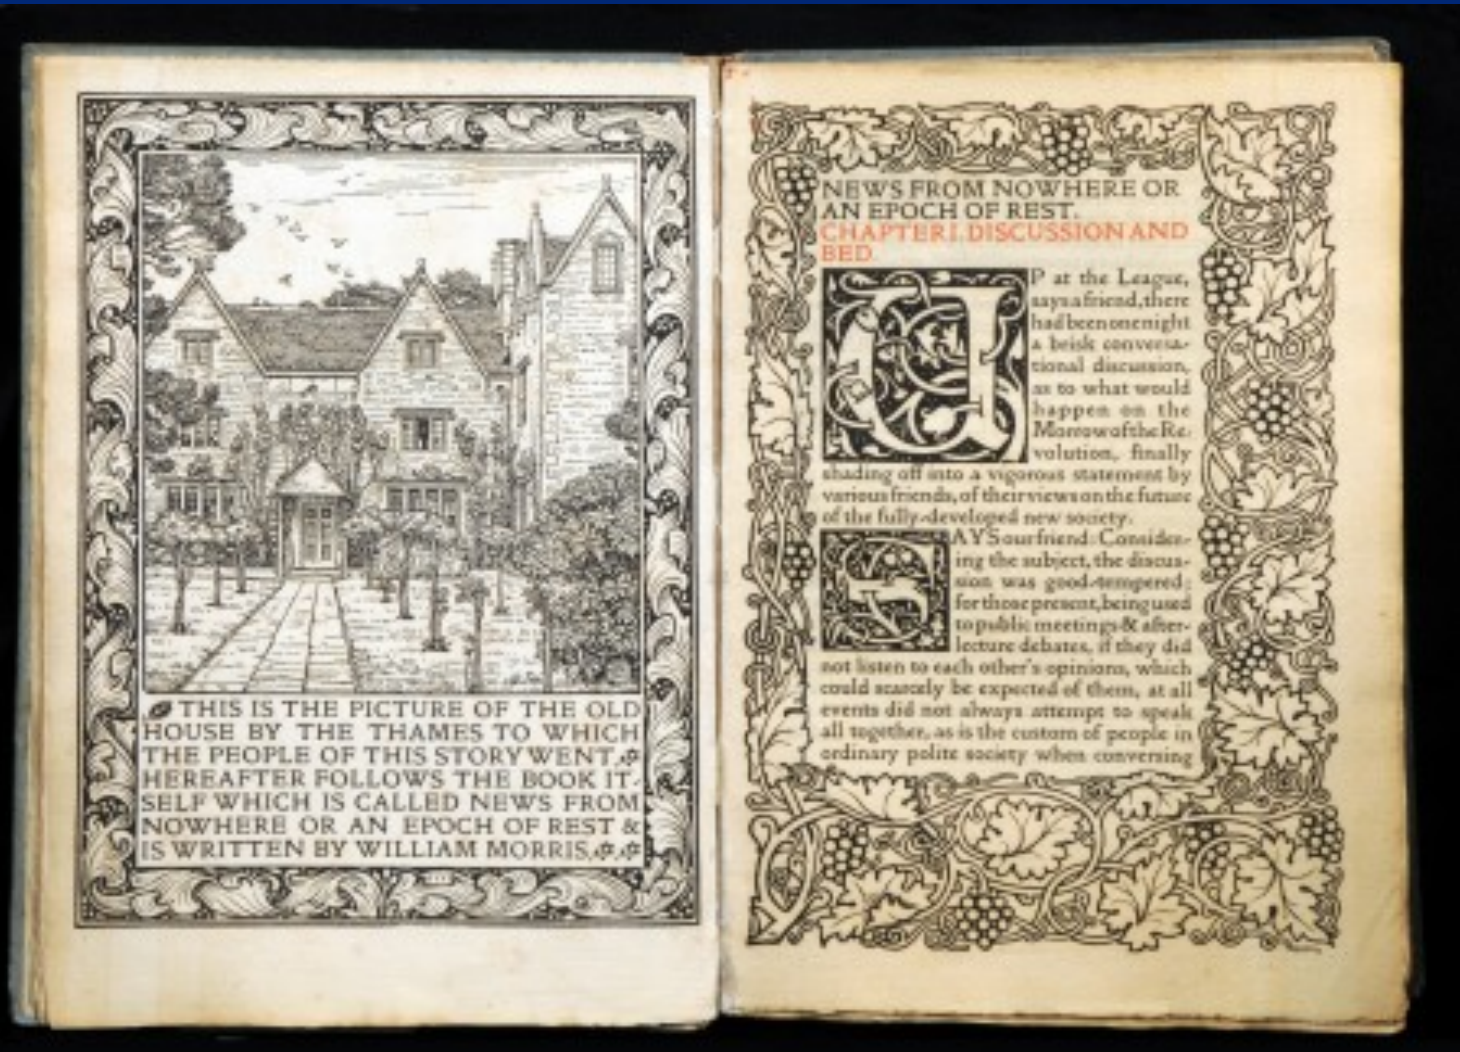 THIS IS THE PICTURE OF THE OLD
HOUSE BY THE THAMES TO WHICH
THE PEOPLE OF THIS STORY WENT.
HEREAFTER FOLLOWS THE BOOK IT-
SELF WHICH IS CALLED NEWS FROM
NOWHERE OR AN EPOCH OF REST &
IS WRITTEN BY WILLIAM MORRIS.
NEWS FROM NOWHERE OR
AN EPOCH OF REST.
CHAPTER I. DISCUSSION AND
BED.
UP at the League,
says a friend, there
had been one night
a brisk conversa-
tional discussion,
as to what would
happen on the
Morrow of the Re-
volution, finally
shading off into a vigorous statement by
various friends, of their views on the future
of the fully-developed new society.
SAYS our friend: Consider-
ing the subject, the discus-
sion was good-tempered;
for those present, being used
to public meetings & after-
lecture debates, if they did
not listen to each other's opinions, which
could scarcely be expected of them, at all
events did not always attempt to speak
all together, as is the custom of people in
ordinary polite society when conversing